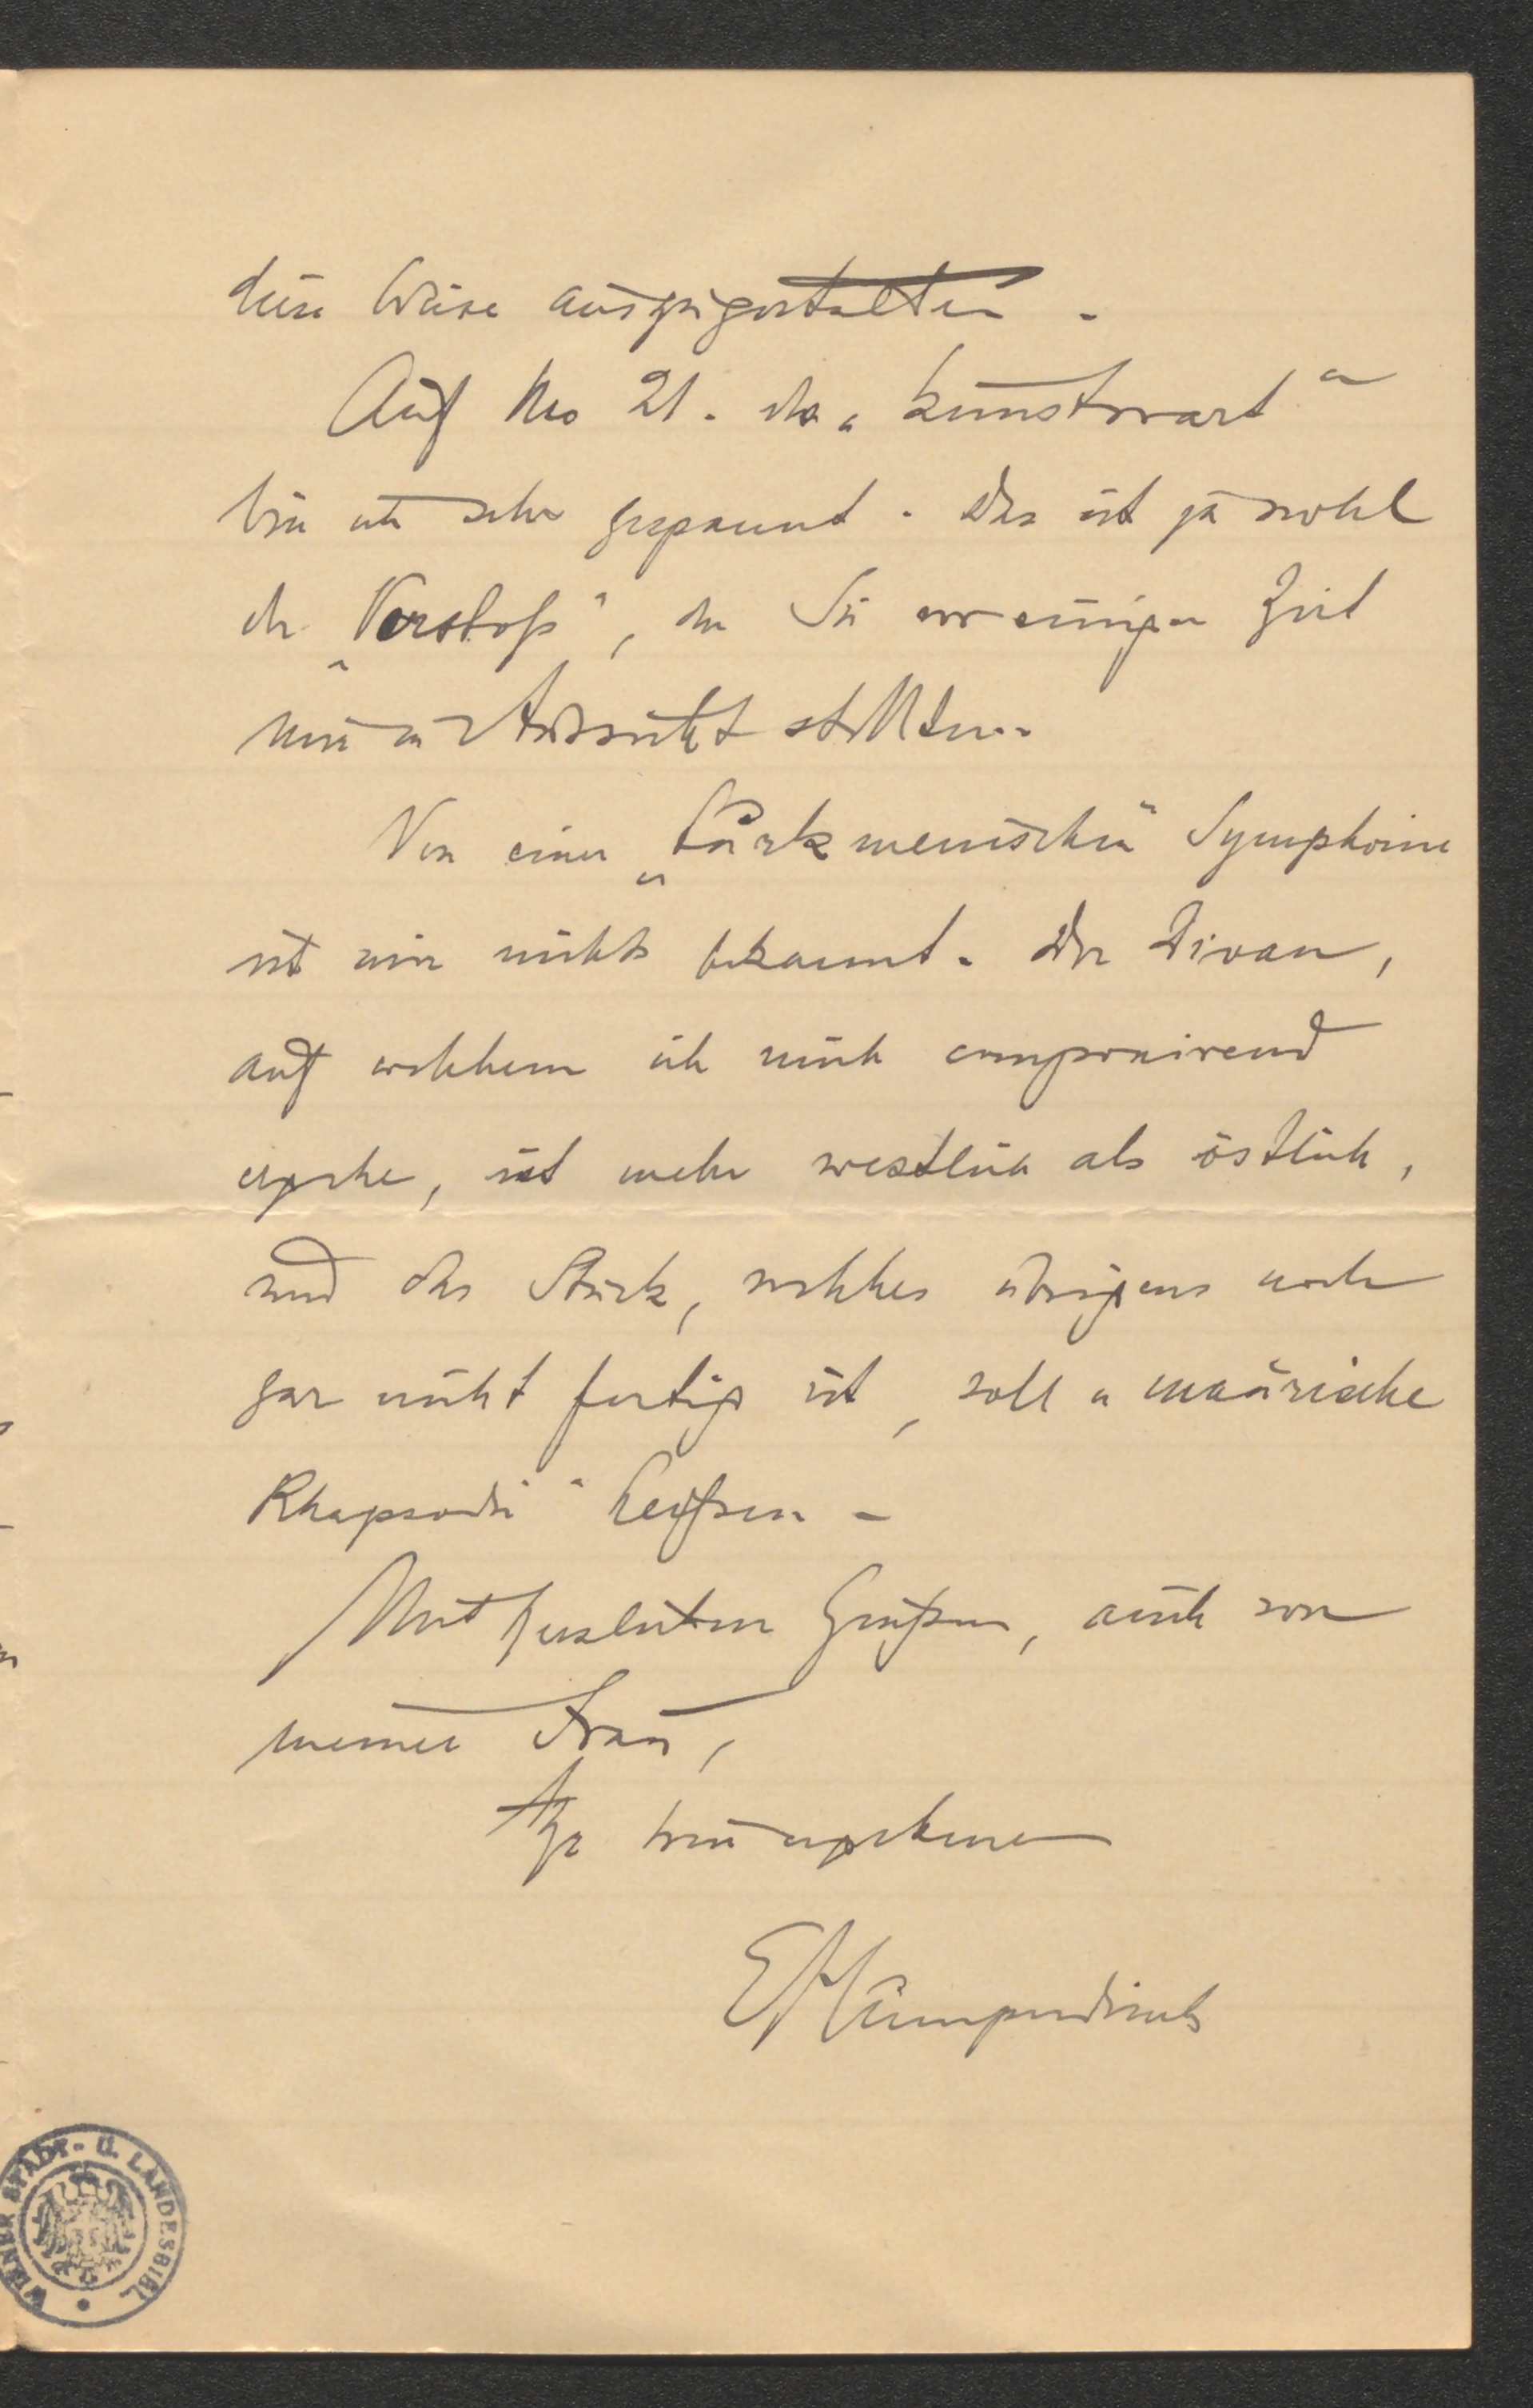 diese Weise auszugestalten.
Auf No 21. des „Kunstwart“
bin ich sehr gespannt. Das ist ja wohl
der „Vorstoß“, den Sie vor einiger Zeit
mir in Aussicht stellten.
Von einer „turkmenischen“ Symphonie
ist mir nichts bekannt. Der Divan,
auf welchem ich mich componirend
ergehe, ist mehr westlich als östlich,
und das Stück, welches übrigens noch
gar nicht fertig ist, soll „maurische
Rhapsodie“ heißen –
Mit herzlichen Grüßen, auch von
meiner Frau,
Ihr treu ergebener
EHumperdinck
WIENER STADT- U. LANDESBIBL.